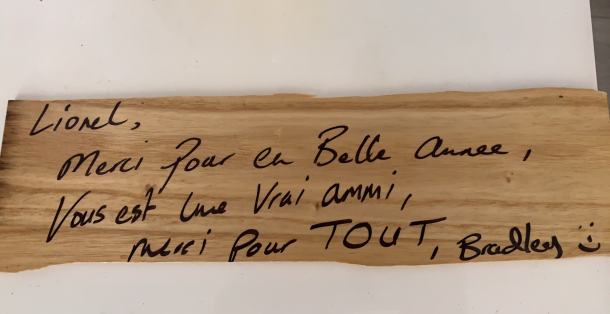 Lionel,
Merci Pour en Belle annee,
Vous est Une Vrai ammi,
Merci Pour TOUT, Bradley :)